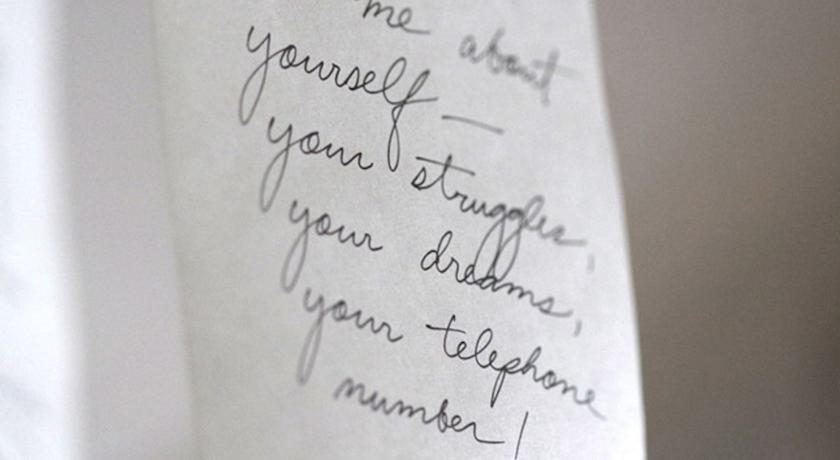 me about
yourself —
your struggles,
your dreams,
your telephone
number!